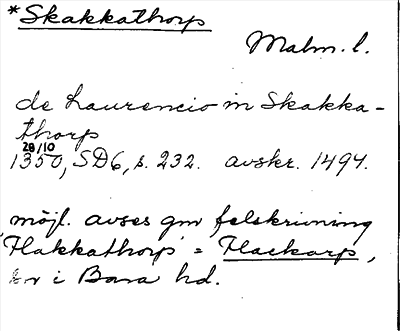 *Skakkathorp
Malm. l.
de Laurencio in Skakka-
thorp
28/10
1350, SD6, s. 232. avskr. 1494.
möjl. avses gm felskrivning
'Flakkathorp' = Flackarp,
i Bara hd.